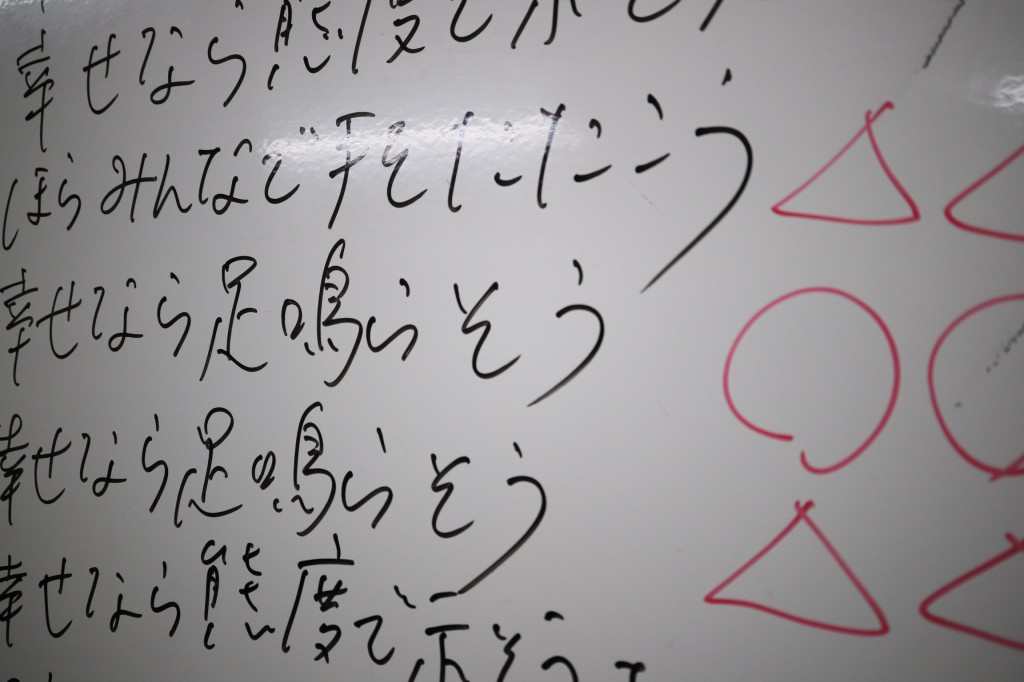 幸せなら態度で示そ
ほらみんなで手をたたこう
幸せなら足鳴らそう
幸せなら足鳴らそう
幸せなら態度で示そうよ